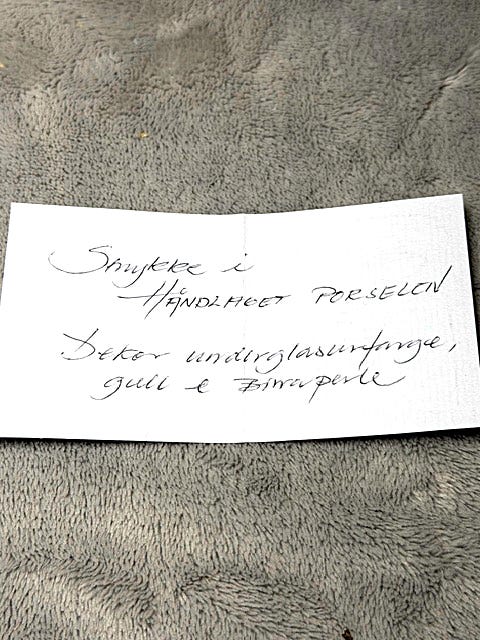 Smykke i
HÅNDLAGET PORSELEN
Dekor underglasurfarge,
gull & Biwaperle